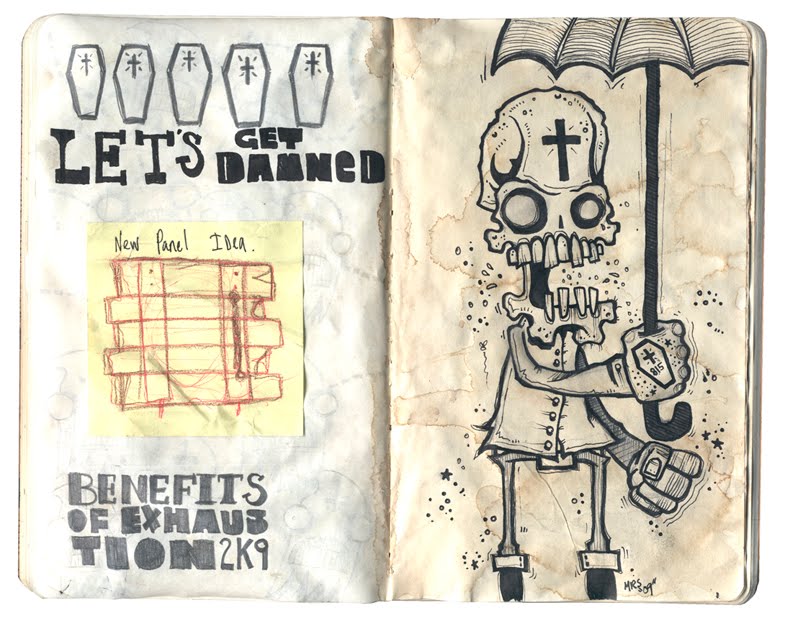 LET'S GET
DAMNED
New Panel Idea.
BENEFITS
OF EXHAUS
TION 2K9